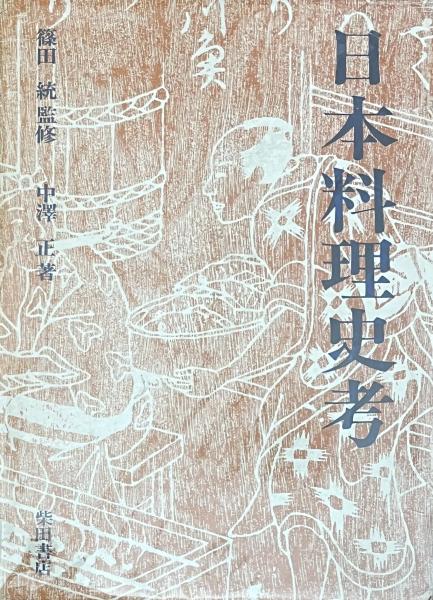 日本料理史考
篠田 統監修 中澤 正著
柴田書店